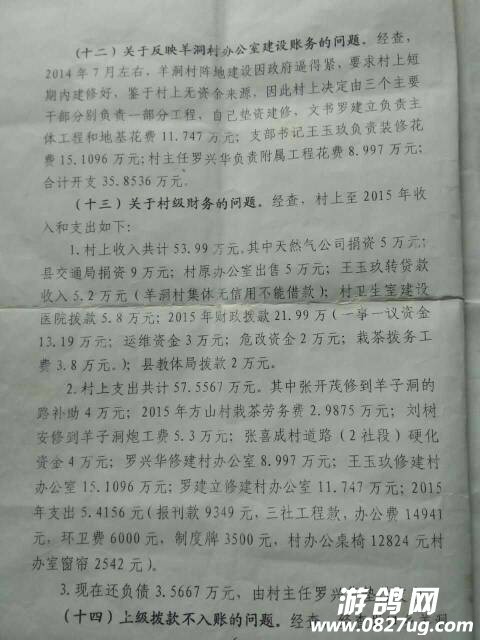 (十二)关于反映羊洞村办公室建设账务的问题。经查,
2014年7月左右,羊洞村阵地建设因政府逼得紧,要求村上短
期内建修好,鉴于村上无资金来源,因此村上决定由三个主要
干部分别负责一部分工程,自己垫资建修,文书罗建立负责主
体工程和地基花费11.747万元;支部书记王玉玖负责装修花
费15.1096万元;村主任罗兴华负责附属工程花费8.997万元;
合计开支35.8536万元。
(十三)关于村级财务的问题。经查,村上至2015年收
入和支出如下:
1.村上收入共计53.99万元,其中天然气公司捐资5万元;
县交通局捐资9万元;村原办公室出售5万元;王玉玖转贷款
收入5.2万元(羊洞村集体无信用不能借款);村卫生室建设
医院拨款5.8万元;2015年财政拨款21.99万(一事一议资金
13.19万元;运维资金3万元;危改资金2万元;栽茶拨务工
费3.8万元。);县教体局拨款2万元。
2.村上支出共计57.5567万元。其中张开茂修到羊子洞的
路补助4万元;2015年方山村栽茶劳务费2.9875万元;刘树
安修到羊子洞炮工费5.3万元;张喜成村道路(2社段)硬化
资金4万元;罗兴华修建村办公室8.997万元;王玉玖修建村
办公室15.1096万元;罗建立修建村办公室11.747万元;2015
年支出5.4156元(报刊款9349元,三社工程款,办公费14941
元,环卫费6000元,制度牌3500元,村办公桌椅12824元村
办室窗帘2542元)。
3.现在还负债3.5667万元,由村主任罗兴华垫
(十四)上级拨款不入账的问题。经查,
游鸽网
www.0827ug.com